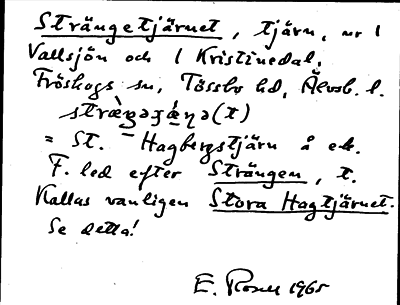 Strängetjärnet, tjärn, nr 1
Vallsjön och 1 Kristinedal,
Fröskogs sn, Tössbo hd, Älvsb. l.
= St. Hagbergstjärn å ek.
F. led efter Strängen, t.
Kallas vanligen Stora Hagtjärnet.
Se detta!
E. Rosell 1965